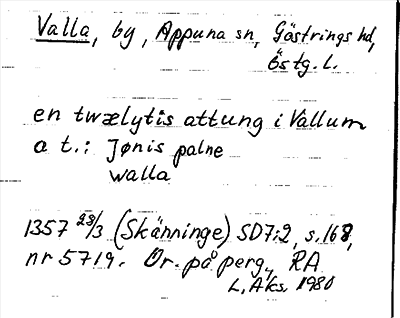 Valla, by, Appuna sn, Göstrings hd,
Östg. L.
en twælytis attung i Vallum
a t.: Jønis palne
walla
1357 23/3 (Skänninge) SD7:2, s. 168,
nr 5719. Or. på perg., RA
L. Aks. 1980